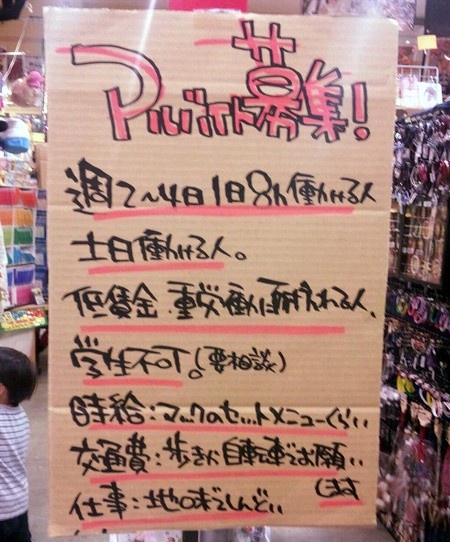 アルバイト募集!
週2~4日1日8h働ける人
土日働ける人。
低賃金、重労働に耐えれる人、
学生不可!(要相談)
時給:マックのセットメニューくらい
交通費:歩きか自転車でお願い
します
仕事:地味でしんどい